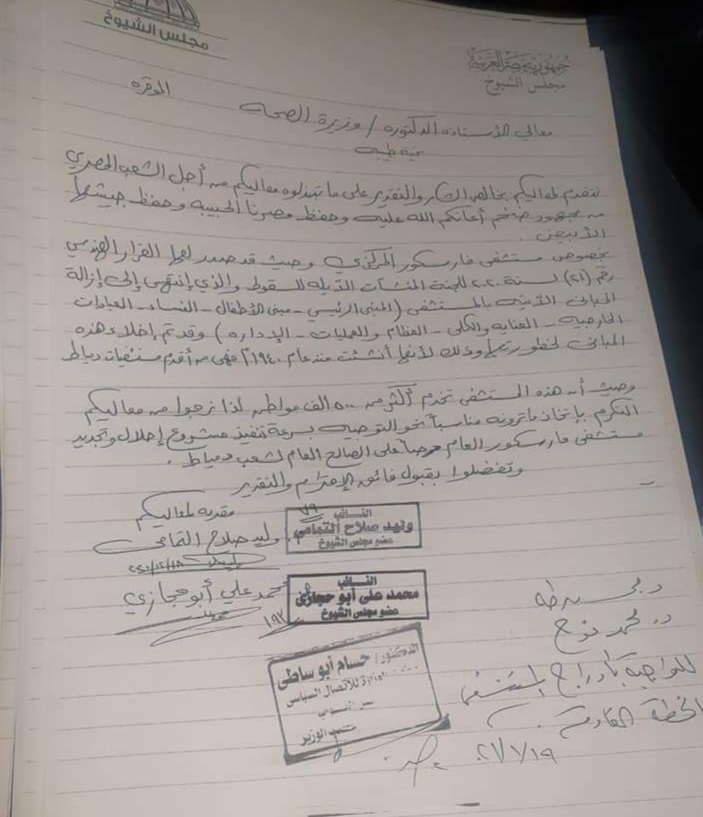 مجلس الشيوخ
جمهورية مصر العربية
مجلس الشيوخ
معالي الأستاذة الدكتورة / وزيرة الصحة الموقرة
تحية طيبة
نتقدم لمعاليكم بخالص الشكر والتقدير على ما تبذلوه معاليكم من أجل الشعب المصري
من مجهود ضخم أعانكم الله عليه وحفظ مصرنا الحبيبة وحفظ جيشها
الأبيض.
بخصوص مستشفى فارسكور المركزي وحيث قد صدر لها القرار الهندسي
رقم (٢١) لسنة ٢٠٢٠ للجنة المنشآت الآيلة للسقوط والذي إنتهى إلى إزالة
المباني الآتية بالمستشفى (المبنى الرئيسي - مبنى الأطفال - النساء - العيادات
الخارجية - العناية والكلى - العظام والعمليات - الإدارة) وقد تم إخلاء هذه
المباني لخطورتها وذلك لأنها أنشئت منذ عام ١٩٤٠م فهي من أقدم مستشفيات دمياط
وحيث أن هذه المستشفى تخدم أكثر من ٥٠٠ الف مواطن لذا نرجوا من معاليكم
التكرم بإتخاذ ما ترونه مناسباً نحو التوجيه بسرعة تنفيذ مشروع إحلال وتجديد
مستشفى فارسكور العام حرصاً على الصالح العام لشعب دمياط.
وتفضلوا بقبول فائق الإحترام والتقدير
مقدمه لمعاليكم
وليد صلاح التمامي
النائب
وليد صلاح التمامي
عضو مجلس الشيوخ
٧٩
محمد علي أبو حجازي
النائب
محمد على أبو حجازى
عضو مجلس الشيوخ
١٩٧
الدكتور/ حسام أبو ساطى
للاتصال السياسى
مكتب الوزير
د. محمد نوح
للتوجيه بإدراج المستشفى
الخطة القادمة
٢١/١/١٩